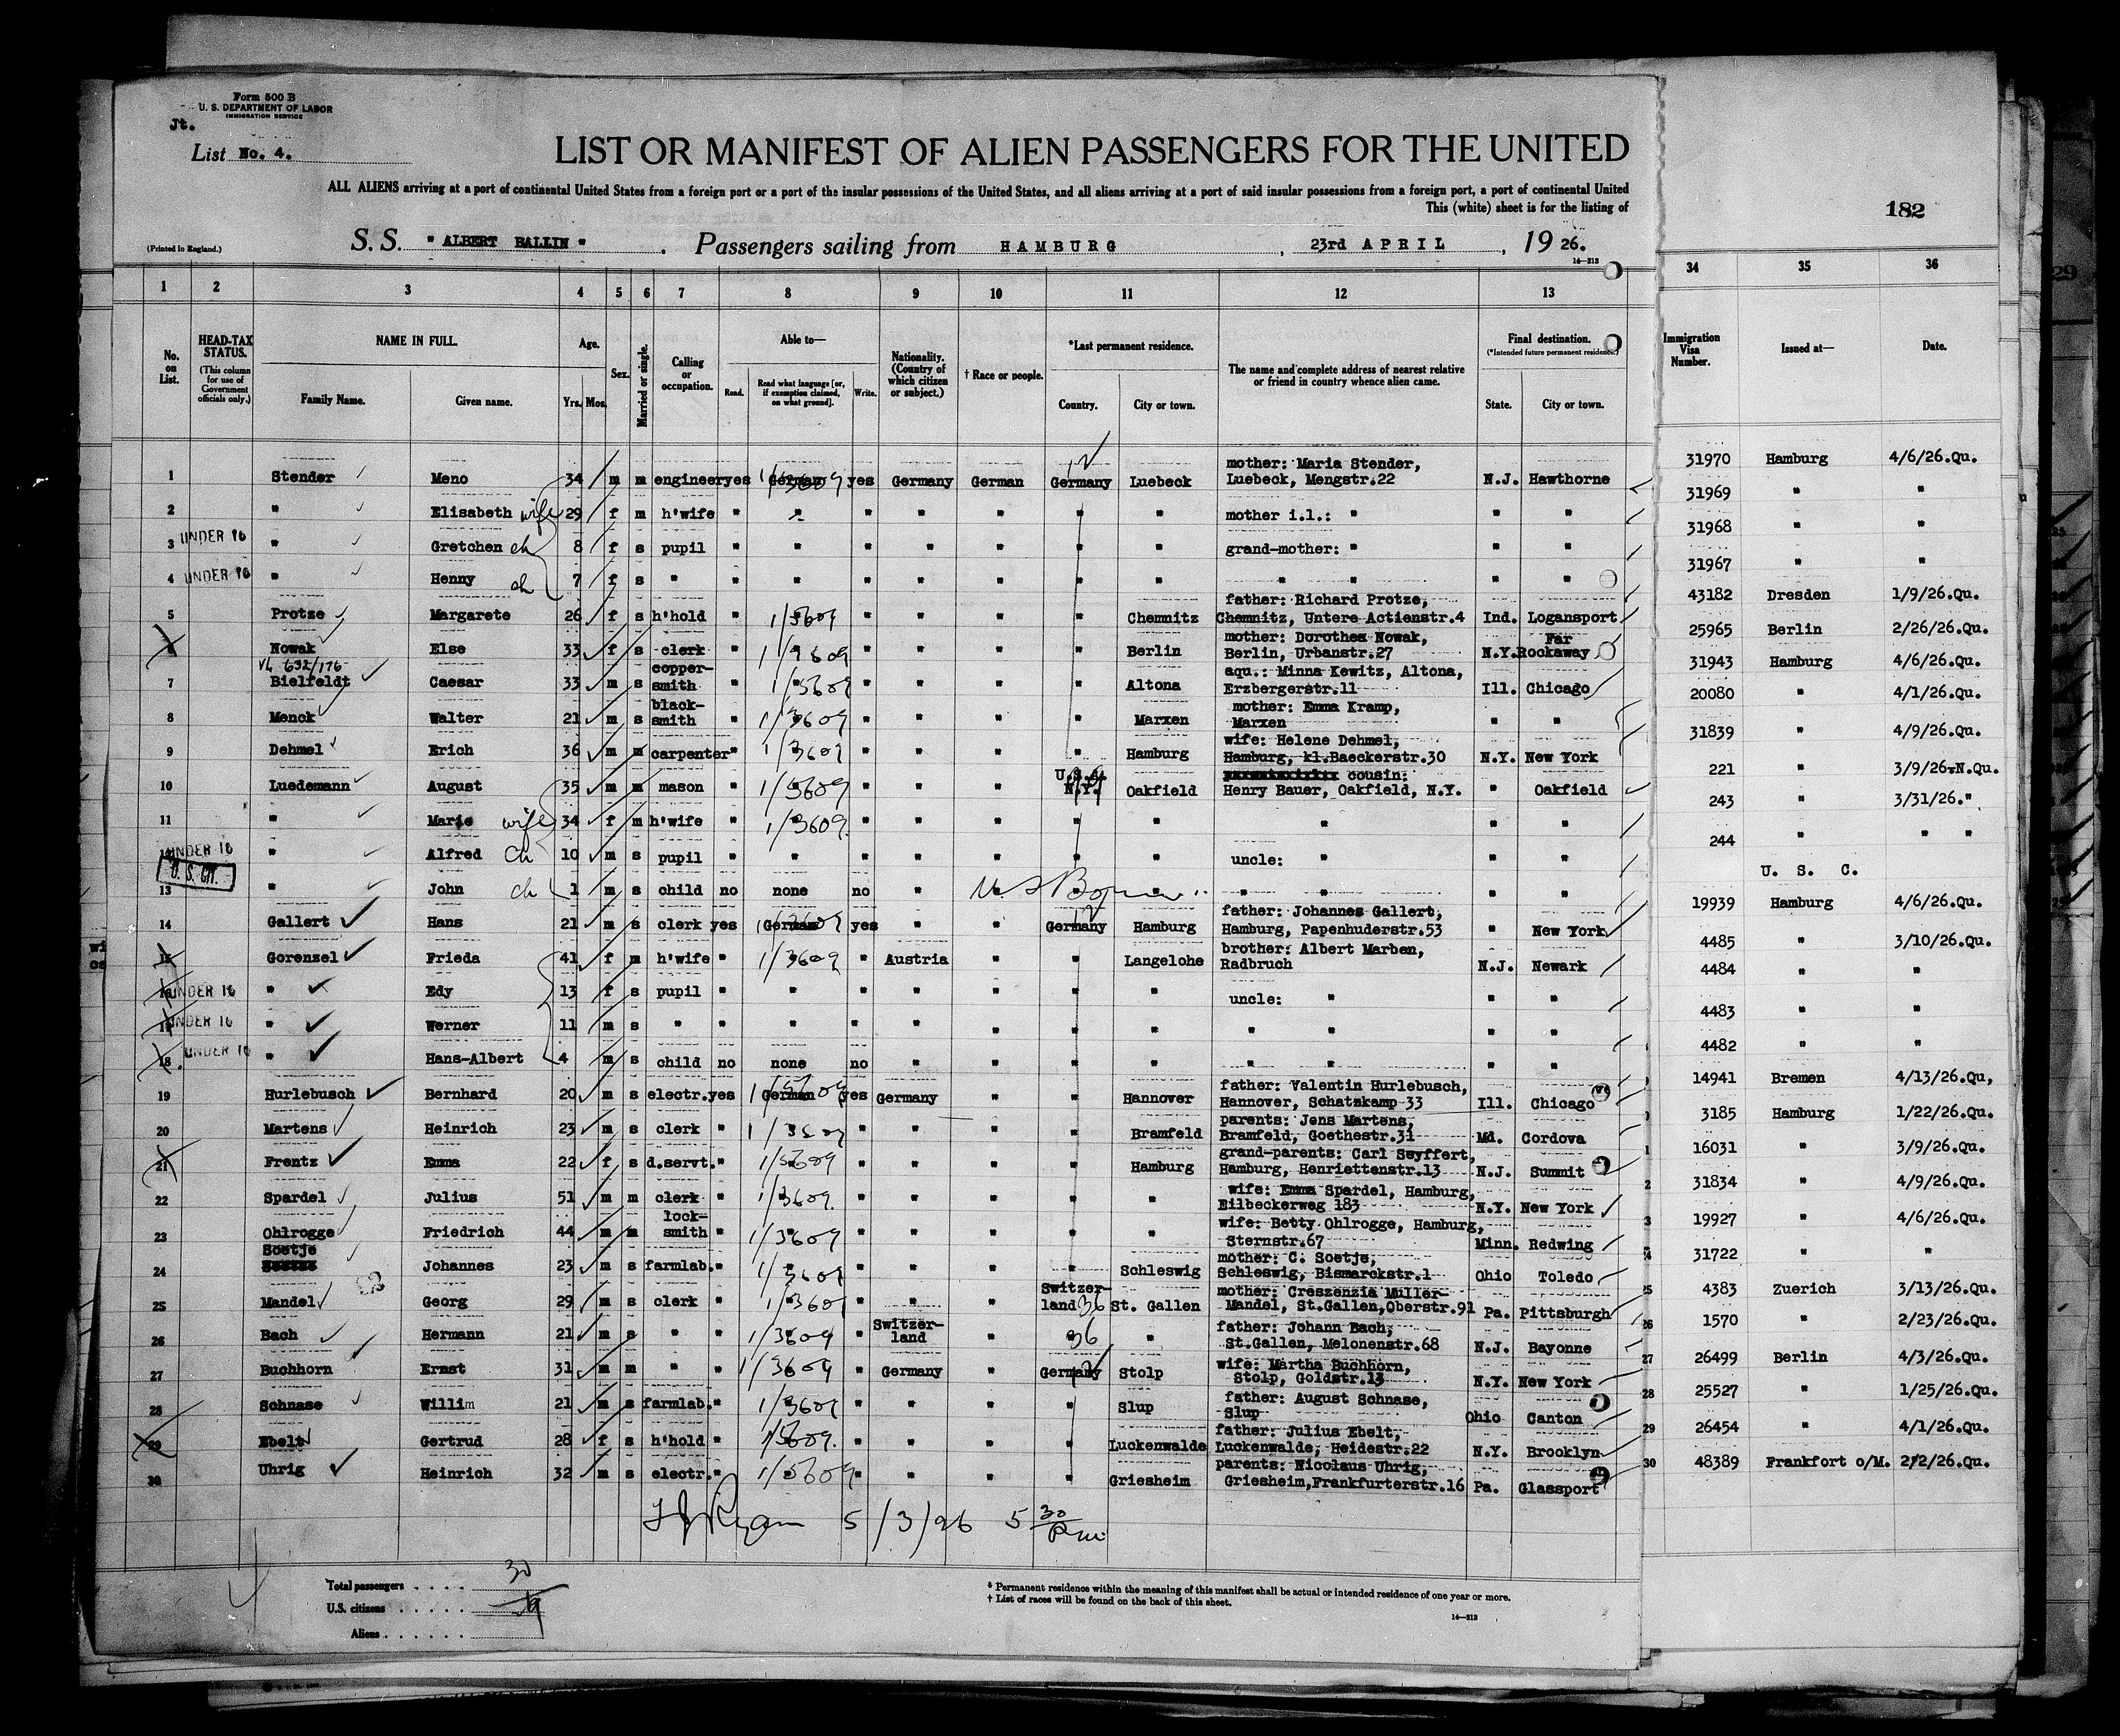 Form 500 B
U. S. DEPARTMENT OF LABOR
IMMIGRATION SERVICE
Jt.
List No. 4.
LIST OR MANIFEST OF ALIEN PASSENGERS FOR THE UNITED
ALL ALIENS arriving at a port of continental United States from a foreign port or a port of the insular possessions of the United States, and all aliens arriving at a port of said insular possessions from a foreign port, a port of continental United
This (white) sheet is for the listing of
182
(Printed in England.)
S. S. "ALBERT BALLIN". Passengers sailing from HAMBURG, 23rd APRIL, 1926.
14—213
1 2 3 4 5 6 7 8 9 10 11 12 13 34 35 36
No. on List. HEAD-TAX STATUS. (This column for use of Government officials only.) NAME IN FULL. Family Name. Given name. Age. Yrs. Mos. Sex. Married or single. Calling or occupation. Able to— Read. Read what language [or, if exemption claimed, on what ground]. Write. Nationality. (Country of which citizen or subject.) † Race or people. *Last permanent residence. Country. City or town. The name and complete address of nearest relative or friend in country whence alien came. Final destination. (*Intended future permanent residence.) State. City or town. Immigration Visa Number. Issued at— Date.
1 Stender Meno 34 m m engineer yes German yes Germany German Germany Luebeck mother: Maria Stender, Luebeck, Mengstr.22 N.J. Hawthorne 31970 Hamburg 4/6/26.Qu.
2 " Elisabeth wife 29 f m h'wife " " " " " " " mother i.l.: " " " 31969 " "
3 UNDER 16 " Gretchen ch 8 f s pupil " " " " " " " grand-mother: " " " 31968 " "
4 UNDER 16 " Henny ch 7 f s " " " " " " " " " " " " 31967 " "
5 Protze Margarete 26 f s h'hold " 1/3609 " " " " Chemnitz father: Richard Protze, Chemnitz, Untere Actienstr.4 Ind. Logansport 43182 Dresden 1/9/26.Qu.
6 Nowak Else 33 f s clerk " 1/3609 " " " " Berlin mother: Dorothea Nowak, Berlin, Urbanstr.27 N.Y. Far Rockaway 25965 Berlin 2/26/26.Qu.
7 VL 632/176 Bielfeldt Caesar 33 m s copper-smith " 1/3609 " " " " Altona aqu.: Minna Kewitz, Altona, Erzbergerstr.11 Ill. Chicago 31943 Hamburg 4/6/26.Qu.
8 Menck Walter 21 m s black-smith " 1/3609 " " " " Marxen mother: Emma Kramp, Marxen " " 20080 " 4/1/26.Qu.
9 Dehmel Erich 36 m m carpenter " 1/3609 " " " " Hamburg wife: Helene Dehmel, Hamburg, kl.Baeckerstr.30 N.Y. New York 31839 " 4/9/26.Qu.
10 Luedemann August 35 m m mason " 1/3609 " " " U.S.A. N.Y. Oakfield cousin: Henry Bauer, Oakfield, N.Y. " Oakfield 221 " 3/9/26.N.Qu.
11 " Marie wife 34 f m h'wife " 1/3609 " " " " " " " " 243 " 3/31/26."
12 UNDER 16 " Alfred ch 10 m s pupil " " " " " " " uncle: " " " 244 " " "
13 U. S. CIT. " John ch 1 m s child no none no " U S Born " " " " " U. S. C.
14 Gallert Hans 21 m s clerk yes German yes " " Germany Hamburg father: Johannes Gallert, Hamburg, Papenhuderstr.53 " New York 19939 Hamburg 4/6/26.Qu.
15 Gorenzel Frieda 41 f m h'wife " 1/3609 " Austria " " Langelohe brother: Albert Marben, Radbruch N.J. Newark 4485 " 3/10/26.Qu.
16 UNDER 16 " Edy 13 f s pupil " " " " " " " uncle: " " " 4484 " "
17 UNDER 16 " Werner 11 m s " " " " " " " " " " " " 4483 " "
18 UNDER 16 " Hans-Albert 4 m s child no none no " " " " " " " " 4482 " "
19 Hurlebusch Bernhard 20 m s electr. yes German yes Germany " " Hannover father: Valentin Hurlebusch, Hannover, Schatzkamp 33 Ill. Chicago 14941 Bremen 4/13/26.Qu,
20 Martens Heinrich 23 m s clerk " 1/3609 " " " " Bramfeld parents: Jens Martens, Bramfeld, Goethestr.31 Md. Cordova 3185 Hamburg 1/22/26.Qu.
21 Frentz Emma 22 f s d.servt. " 1/3609 " " " " Hamburg grand-parents: Carl Seyffert, Hamburg, Henriettenstr.13 N.J. Summit 16031 " 3/9/26.Qu.
22 Spardel Julius 51 m m clerk " 1/3609 " " " " " wife: Emma Spardel, Hamburg, Eilbeckerweg 183 N.Y. New York 31834 " 4/9/26.Qu.
23 Ohlrogge Friedrich 44 m m lock-smith " 1/3609 " " " " " wife: Betty Ohlrogge, Hamburg, Sternstr.67 Minn. Redwing 19927 " 4/6/26.Qu.
24 Soetje Johannes 23 m s farmlab. " 1/3609 " " " " Schleswig mother: C. Soetje, Schleswig, Bismarckstr.1 Ohio Toledo 31722 " "
25 Mandel Georg 29 m s clerk " 1/3609 " " " Switzer-land 36 St. Gallen mother: Creszenzia Müller-Mandel, St.Gallen,Oberstr.91 Pa. Pittsburgh 4383 Zuerich 3/13/26.Qu.
26 Bach Hermann 21 m s " " 1/3609 " Switzer-land " 36 " father: Johann Bach, St.Gallen, Melonenstr.68 N.J. Bayonne 1570 " 2/23/26.Qu.
27 Buchhorn Ernst 31 m m " " 1/3609 " Germany " Germany Stolp wife: Martha Buchhorn, Stolp, Goldstr.13 N.Y. New York 26499 Berlin 4/3/26.Qu.
28 Schnase Willim 21 m s farmlab. " 1/3609 " " " " Slup father: August Schnase, Slup Ohio Canton 25527 " 1/25/26.Qu.
29 Ebelt Gertrud 28 f s h'hold " 1/3609. " " " " Luckenwalde father: Julius Ebelt, Luckenwalde, Heidestr.22 N.Y. Brooklyn 26454 " 4/1/26.Qu.
30 Uhrig Heinrich 32 m s electr. " 1/3609 " " " " Griesheim parents: Nicolaus Uhrig, Griesheim,Frankfurterstr.16 Pa. Glassport 48389 Frankfort o/M. 2/2/26.Qu.
Ryan 5/3/26 5 30 Pm
Total passengers . . . . 30
U.S. citizens . . . . .
Aliens . . . . . .
* Permanent residence within the meaning of this manifest shall be actual or intended residence of one year or more.
† List of races will be found on the back of this sheet.
14—213